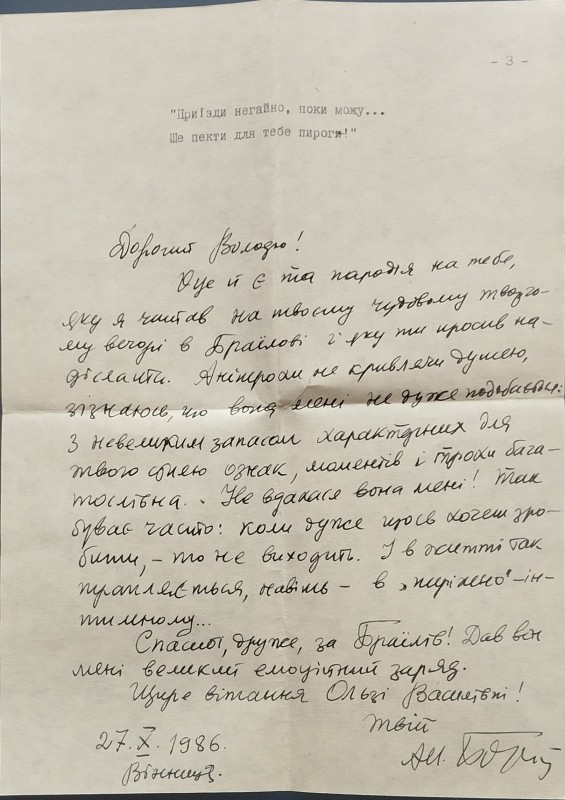 - 3 -
"Приїзди негайно, поки можу...
Ще пекти для тебе пироги!"
Дорогий Володю!
Оце й є та пародія на тебе,
яку я читав на твоєму чудовому творчо-
му вечорі в Браїлові і яку ти просив на-
діслати. Анітрохи не кривлячи душею,
зізнаюсь, що вона мені не дуже подобається:
з невеликим запасом характерних для
твого стилю ознак, моментів і трохи бага-
тослівна. Не вдалася вона мені! Так
буває часто: коли дуже щось хочеш зро-
бити, – то не виходить. І в житті так
трапляється, навіть – в – ін-
тимному...
Спасибі, друже, за Браїлів! Дав він
мені великий емоційний заряд.
Щире вітання Ользі Василівні!
Твій
27.X.1986.
Вінниця.